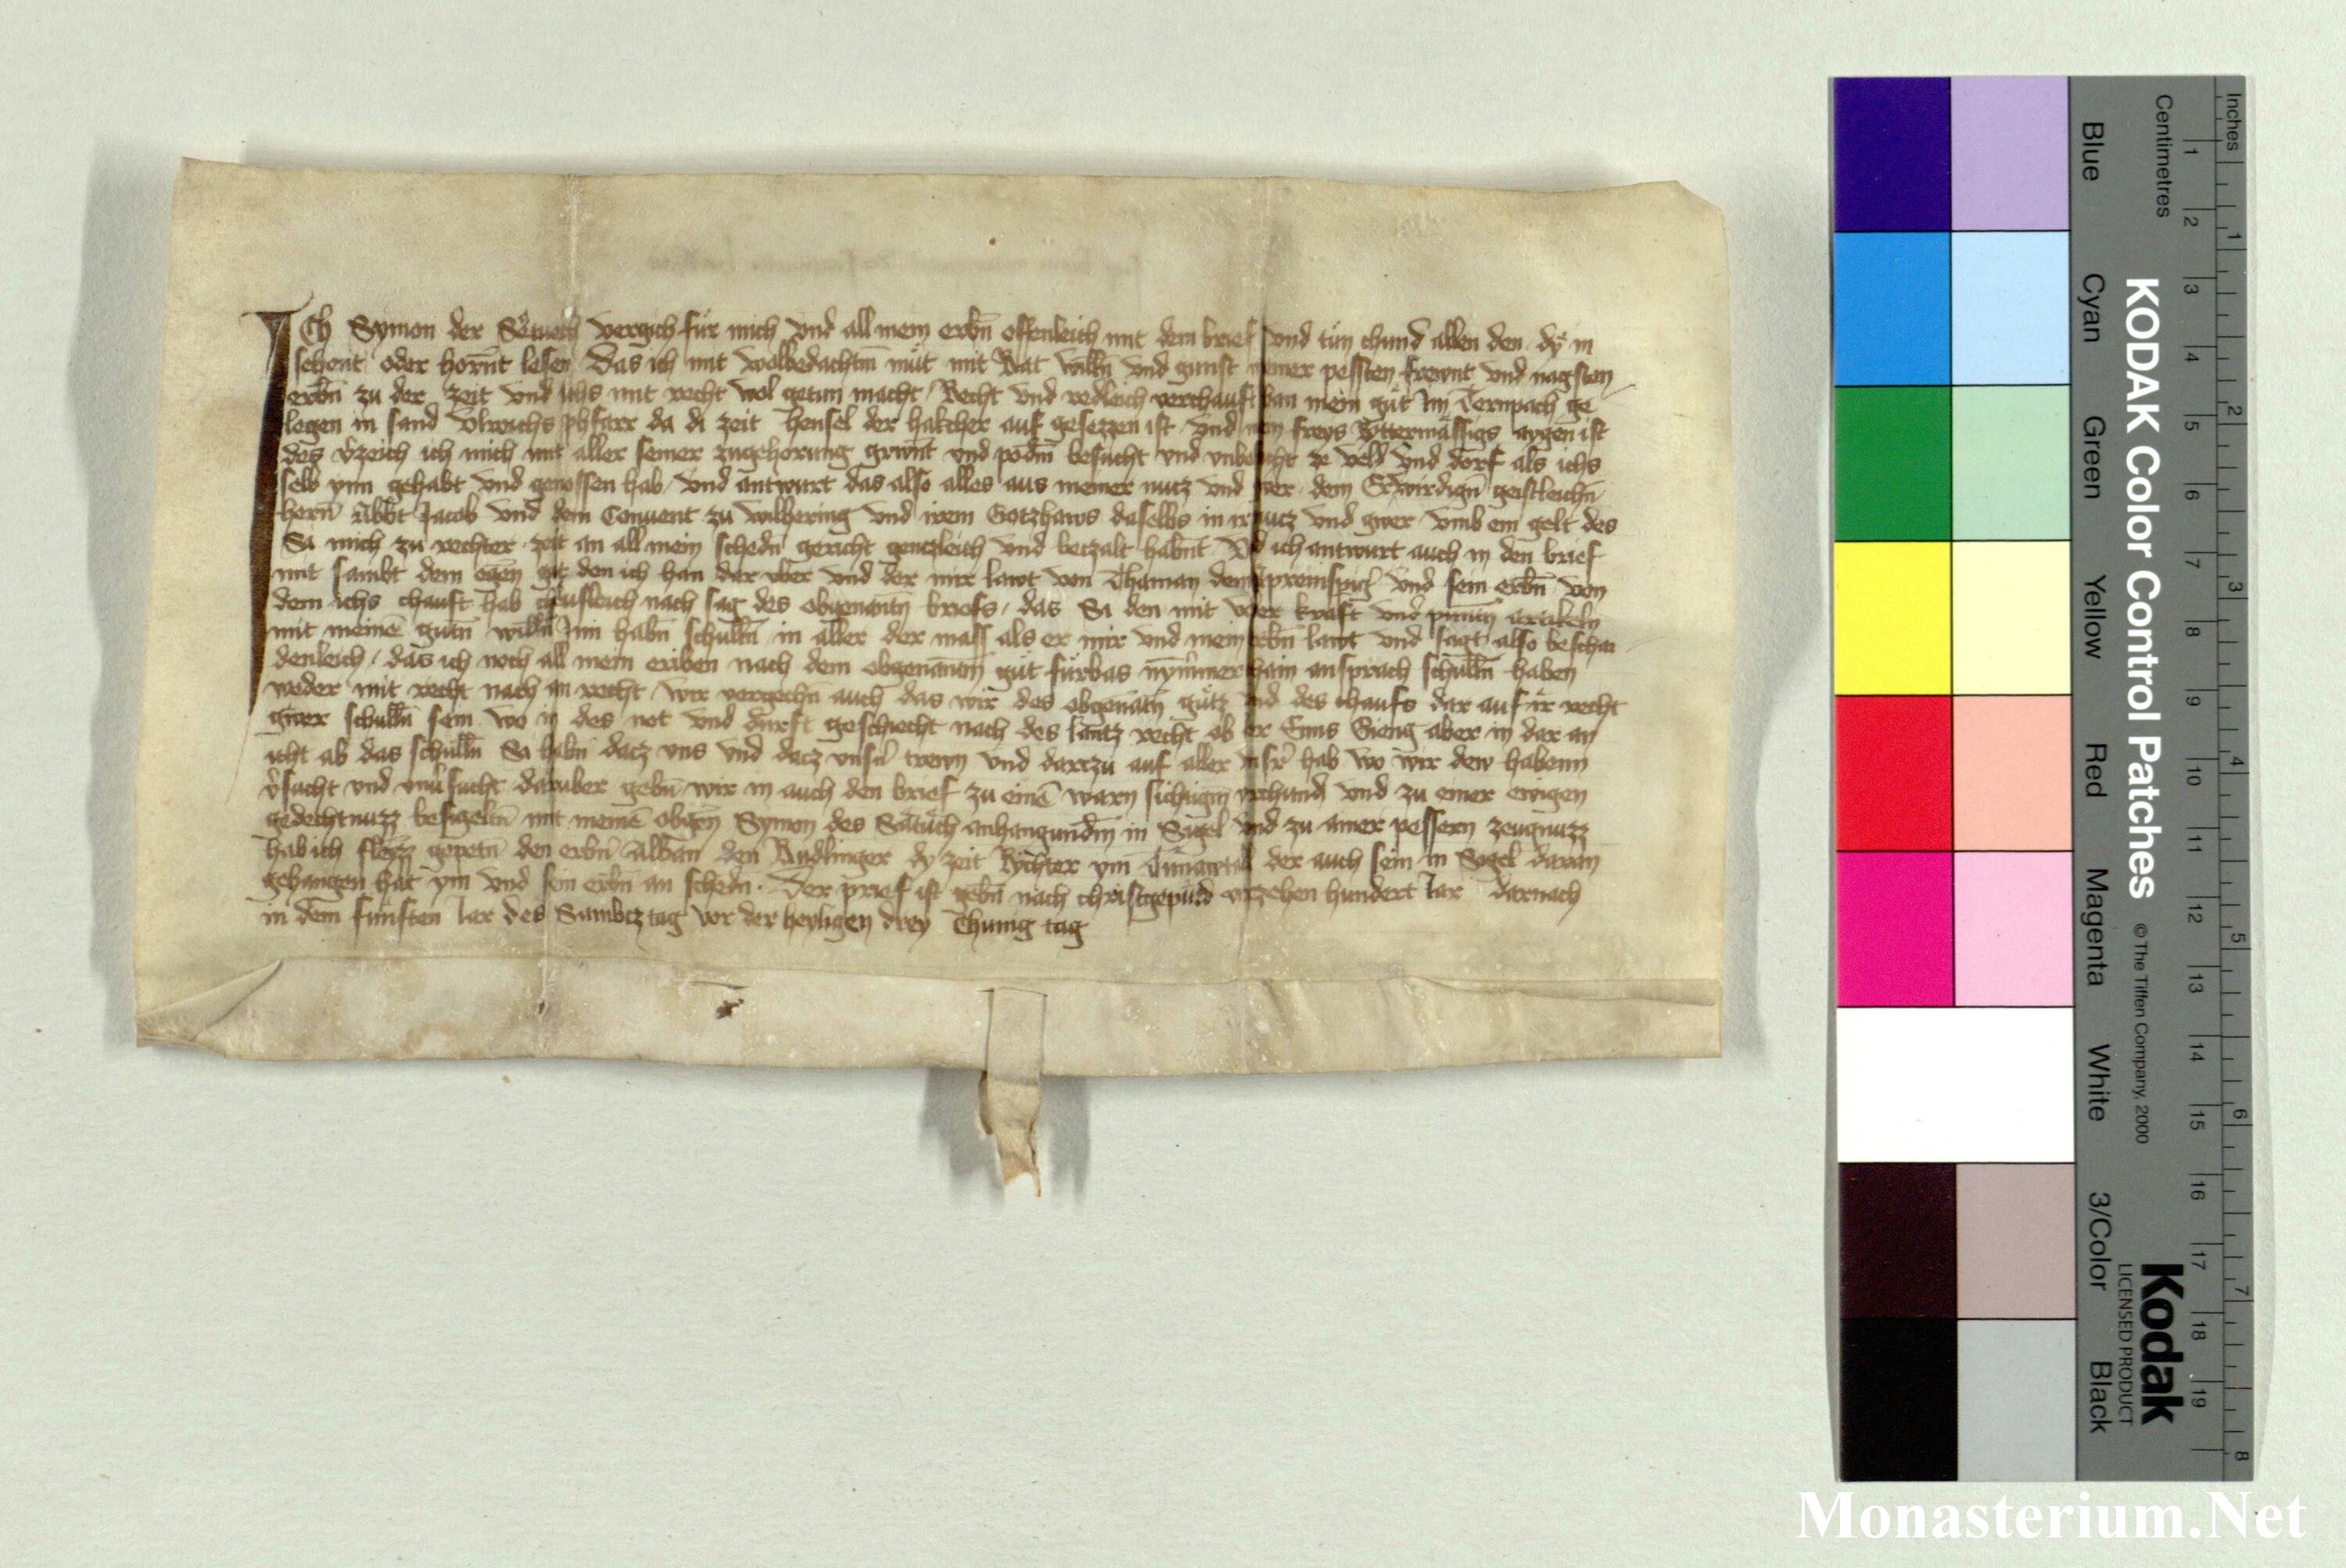 Ich Symon der Sätuech vergich für mich vnd all mein erbn̄ offenleich mit dem brief vnd tün chund allen den dy in
sehent oder hörnt lesen Das ich mit wolbedachtm̄ müt mit Rat willn̄ vnd gunst meiner pessten frewnt vnd nagsten
erbn̄ zu der zeit vnd ichs mit recht wol getun macht Recht vnd redleich verchauft han mein güt Im Dernpach ge
legen in sand Vlreichs phfarr da di zeit Hensel der hakcher auf gesezzen ist vnd mein freys Rittermässigs aygen ist
des v̄zeich ich mich mit aller seiner zugehorung grwnt vnd podm̄ besucht vnd vnbesucht ze veld vnd dorf als ichs
selb ynn gehabt vnd genossen hab vnd antwurt das also alles aus meiner nutz vnd gwer dem Erwirdign̄ geistleichn̄
hern̄ Abbt Jacob vnd dem Conuent zu Wilhering vnd irem Gotzhaws daselbs in ir nucz vnd gwer vmb ein gelt des
Sa mich zu rechter zeit an all mein schedn̄ gericht genczleich vnd beczalt habnt Vnd ich antwurt auch in den brief
mit sambt dem egen̄ güt den ich han dar vber vnd der mir lawt von Thaman dem vnd sein erbn̄ von
dem ichs chauft hab chaufleich nach sag des obgenantn̄ briefs das Sa den mit voller kraft vnd puntn̄ artikeln
mit meinē gutn̄ willn̄ Inn habn̄ schulln̄ in aller der mass als er mir vnd mein erbn̄ lawt vnd sagt also beschai
denleich das ich noch all mein eriben nach dem obgenantn̄ güt fürbas nymmer chain ansprach schulln̄ haben
weder mit recht nach an recht wir vergechn̄ auch das wir des obgenātn̄ gütz vnd des chaufs dar auf ir recht
gwer schulln̄ sein wo in des not vnd durft geschiecht nach des lantz recht ob der Enns Gieng aber in dar an
icht ab das schulln̄ Sa habn̄ dacz vns vnd dacz vnsn̄ trewn vnd darczu auf aller vnsr̄ hab wo wir dew habenn
v̄sucht vnd vnv̄sucht daruber gebn̄ wir in auch den brief zu einē warn sichtign̄ vrchund vnd zu einer ewigen
gedechtnuzz besigeltn̄ mit meinē obgen̄ Symon des Sätüch anhangundm̄ in Sigel vnd zu ainer pessern zeugnuzz
hab ich fleizz gepetn̄ den erbn̄ Alban den Andlinger dy zeit Rychter ym der auch sein in Sigel daran
gehangen hat ym vnd sein erbn̄ an schedn̄. Der prief ist gebn̄ nach christgepurd virzehen hundert Iar darnach
in dem funften Iar des Sambcztag vor der heyligen drey Chunig tag
KODAK Color Control Patches
© The Tiffen Company, 2000
Kodak
LICENSED PRODUCT
Inches 1 2 3 4 5 6 7 8
Centimetres 1 2 3 4 5 6 7 8 9 10 11 12 13 14 15 16 17 18 19
Blue
Cyan
Green
Yellow
Red
Magenta
White
3/Color
Black
Monasterium.Net